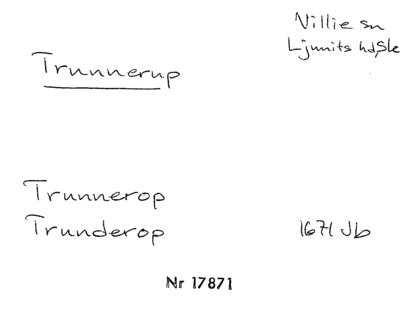 Villie sn
Ljunits hd, Sk
Trunnerup
Trunnerop
Trunderop 1671 Jb
Nr 17871